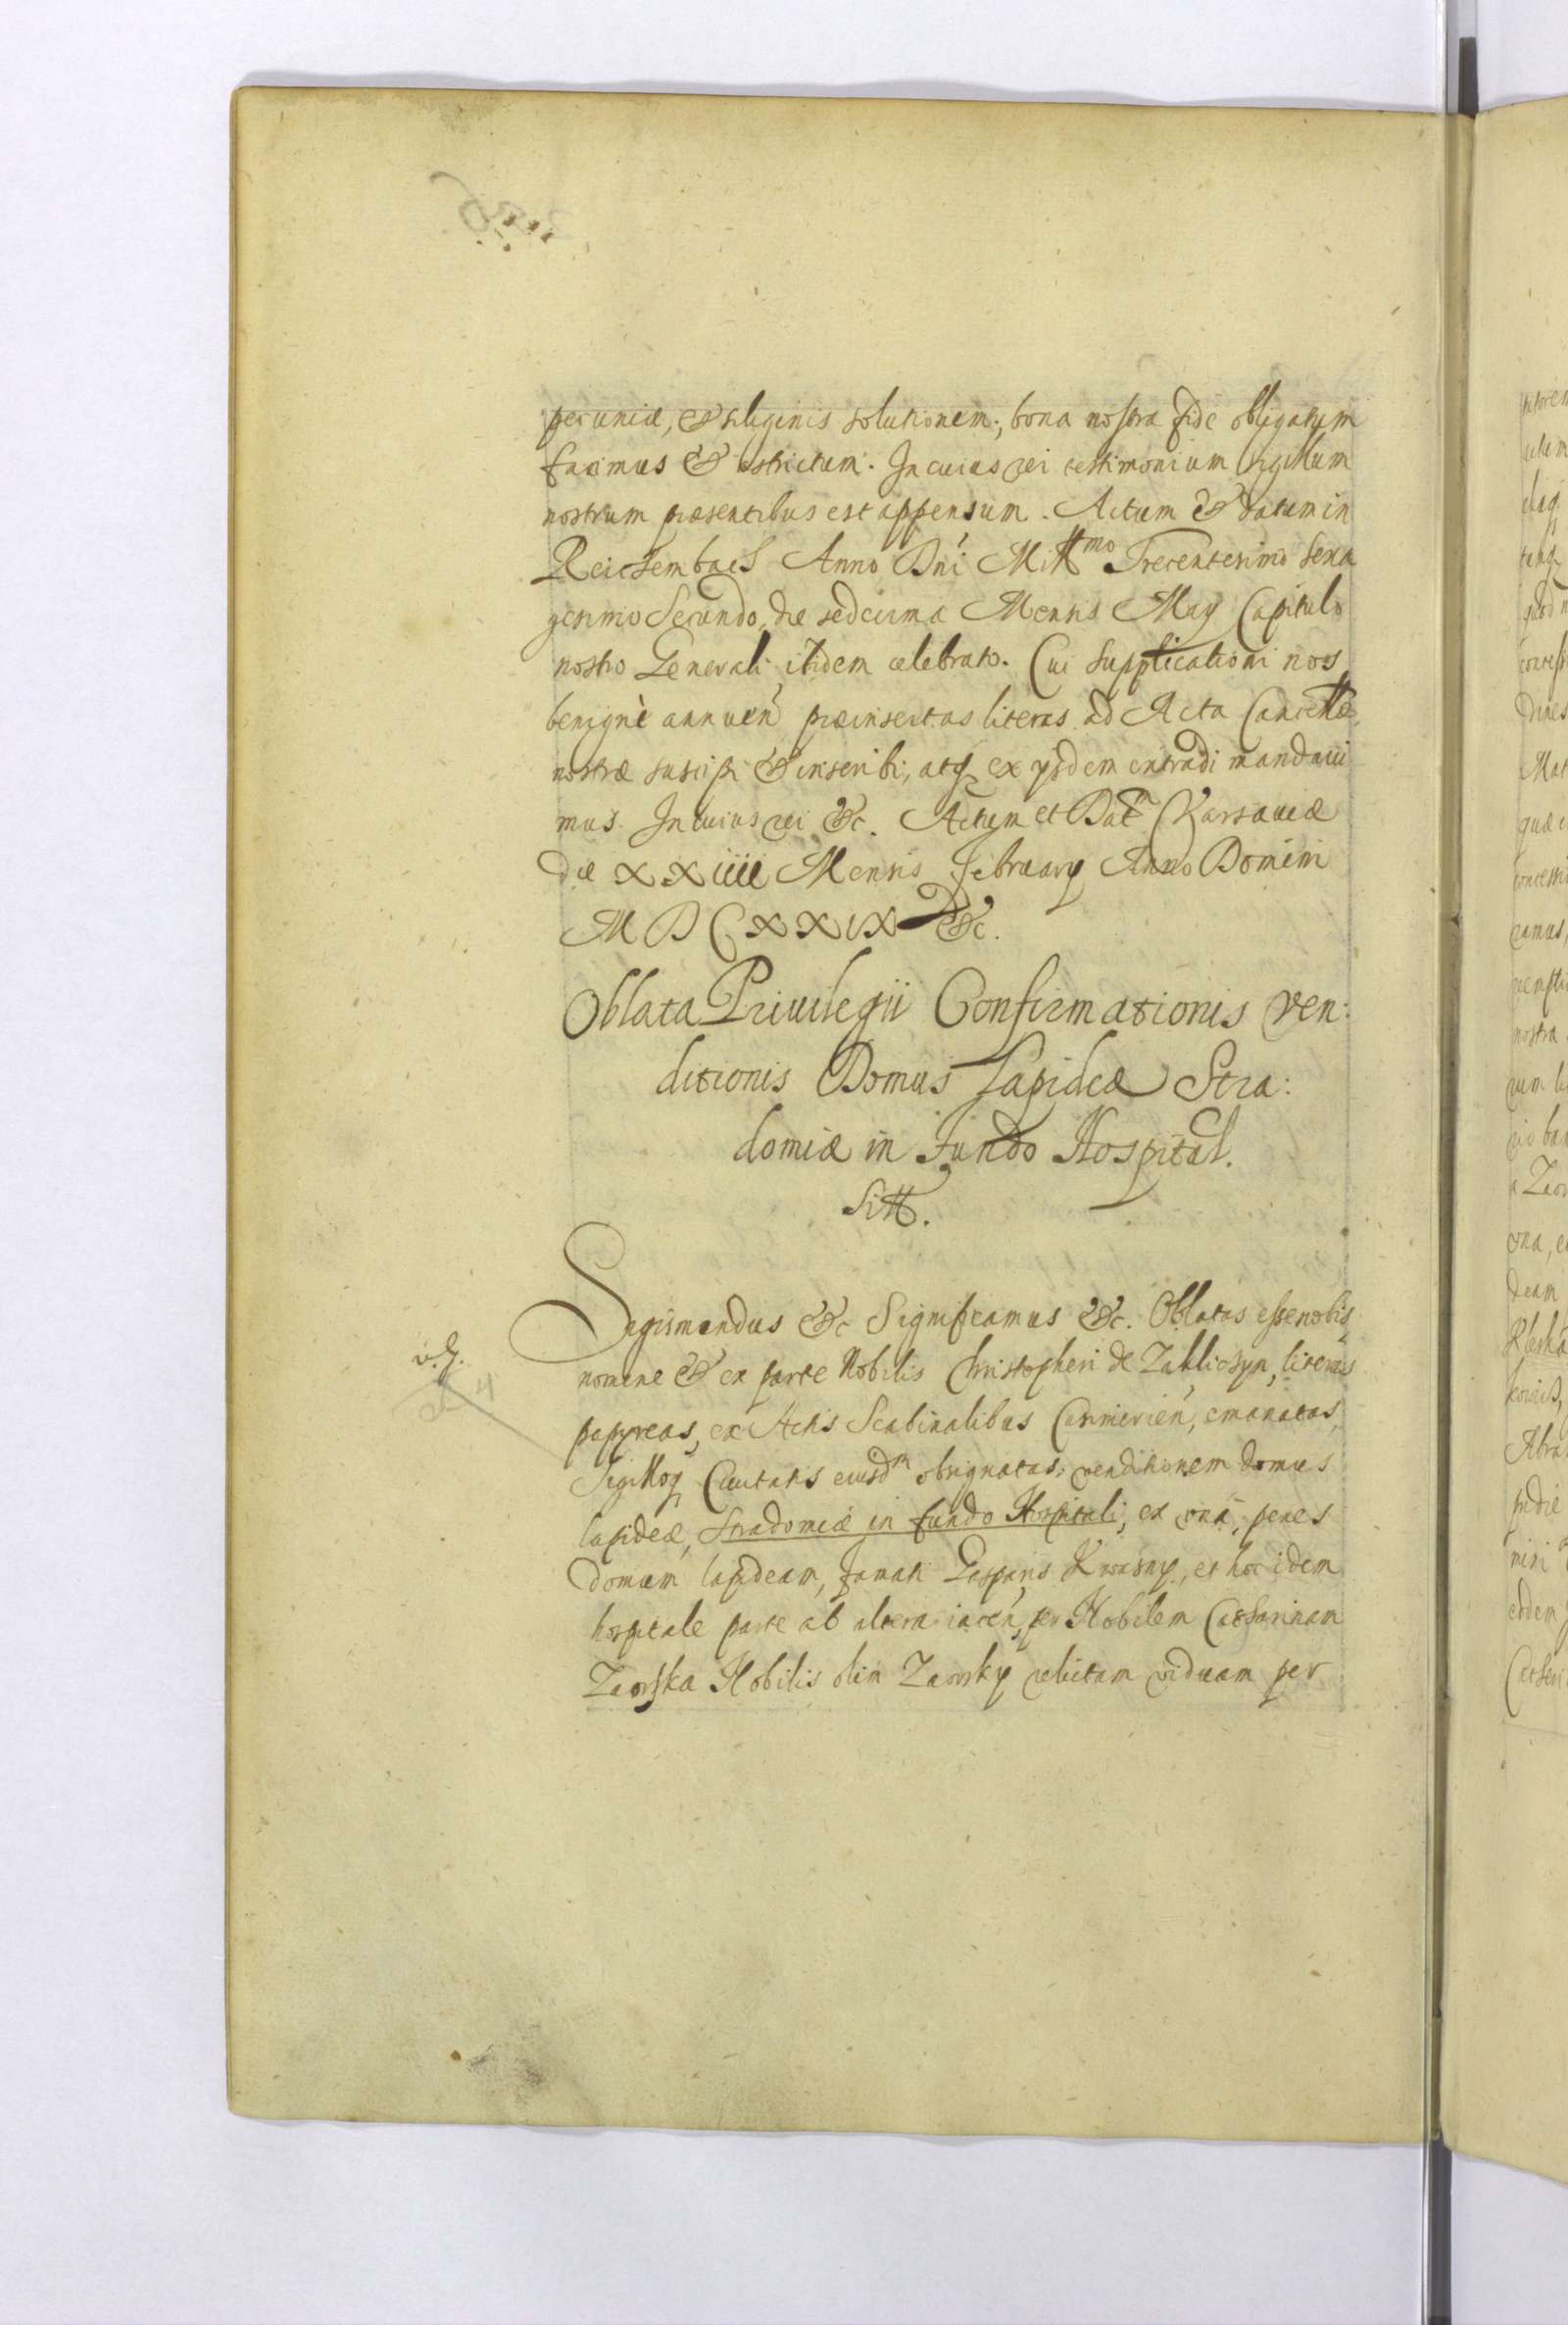 pecuniæ, & siliginis solutionem, bona nostra fide obligatum
facimus & astrictum. In cuius rei testimonium sigillum
nostrum præsentibus est appensum. Actum & datum in
Anno Dni Mill̃mo Trecentesimo Sexa
gesimo Secundo, die sedecima Mensis May Capitulo
nostro Generali ibidem celebrato. Cui Supplicationi nos
benignè annuen̄ præinsertas literas ad Acta Cancellæ
nostræ suscipi & inscribi, atq ex ysdem extradi mandaui
mus. In cuius rei &c. Actum et Dat Varsauiæ
Die XXiiii Mensis February Anno Domini
M D C XXIX &c.
Oblata Priuilegii Confirmationis Ven:
ditionis Domus Lapideæ Stra:
domiæ in Fundo Hospital.
Sitt.
Sigismundus &c Significamus &c. Oblatas esse nobis
nomine & ex parte Nobilis Christopheri de Zakliczyn, literas
papyreas, ex Actis Scabinalibus Casimirien̄, emanatas,
Sigilloq Ciuitatis eiusdm obsignatas, venditionem domus
lapideæ, Stradomiæ in fundo Hospitali, ex unā, penes
domum lapideam, Famati Gasparis Krasny, et hoc idem
hospitale parte ab altera iacen̄, per Nobilem Catharinam
Zaorska Nobilis olim Zaorsky relictam viduam per